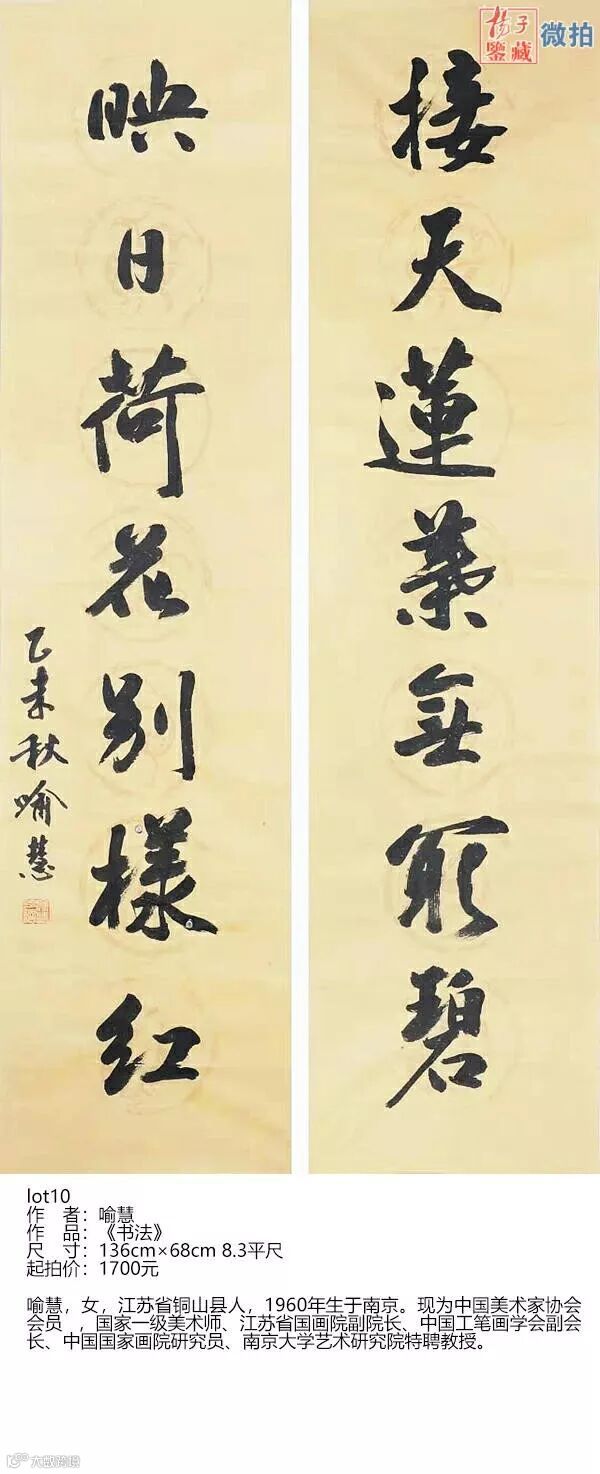 揚子
鑒藏
微拍
接天蓮葉無窮碧
映日荷花别樣红
乙未秋喻慧
lot10
作　者：喻慧
作　品：《书法》
尺　寸：136cm×68cm 8.3平尺
起拍价：1700元
喻慧，女，江苏省铜山县人，1960年生于南京。现为中国美术家协会
会员 ，国家一级美术师、江苏省国画院副院长、中国工笔画学会副会
长、中国国家画院研究员、南京大学艺术研究院特聘教授。